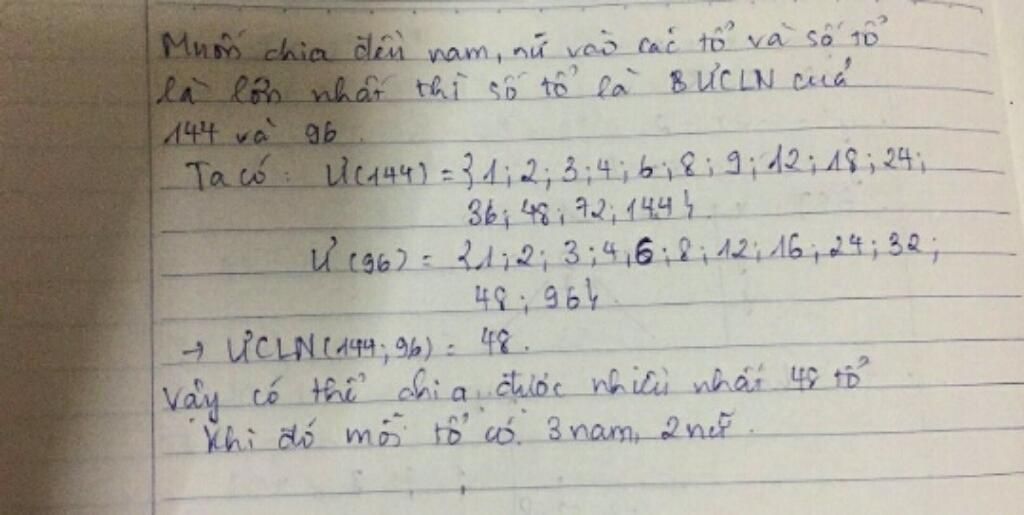 Muốn chia đều nam, nữ vào các tổ và số tổ
là lớn nhất thì số tổ là ƯCLN của
144 và 96.
Ta có: Ư(144) = {1; 2; 3; 4; 6; 8; 9; 12; 18; 24;
36; 48; 72; 144}
Ư(96) = {1; 2; 3; 4, 6; 8; 12; 16; 24; 32;
48; 96}.
→ ƯCLN(144; 96) = 48.
Vậy có thể chia được nhiều nhất 48 tổ
Khi đó mỗi tổ có 3 nam, 2 nữ.